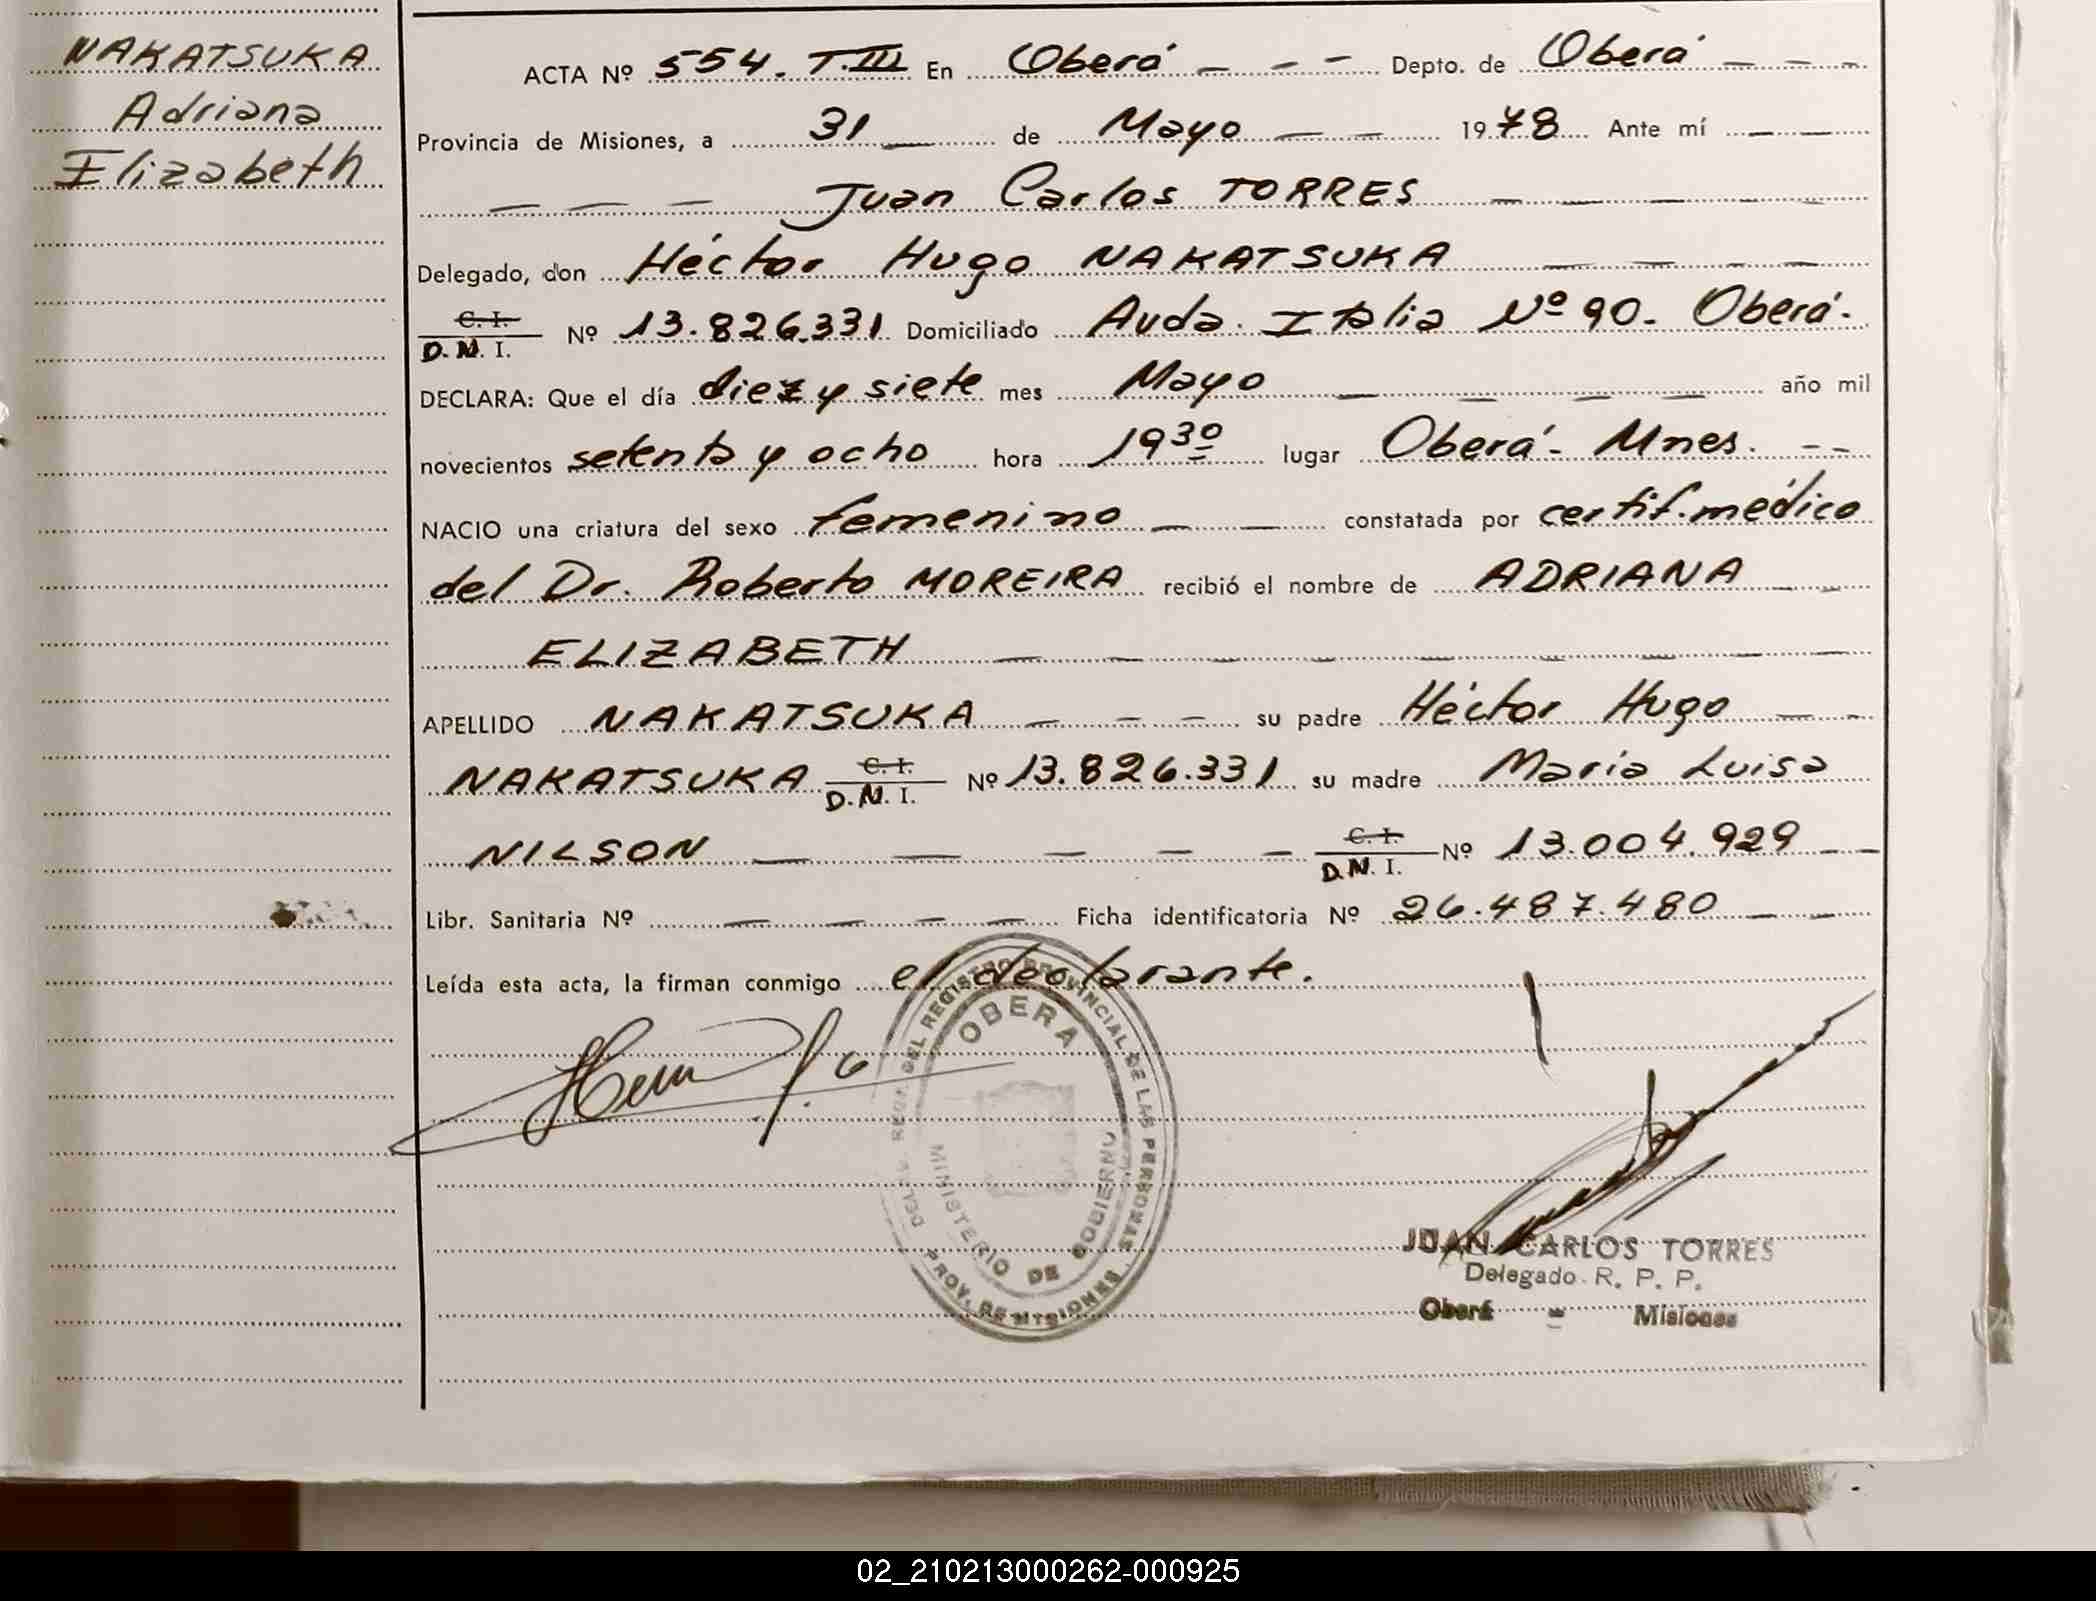 NAKATSUKA
Adriana
Elizabeth
ACTA Nº 554. T.III En Oberá - - - Depto. de Oberá - - -
Provincia de Misiones, a 31 - de Mayo - - 1978 Ante mí - -
- - - Juan Carlos TORRES - - - -
Delegado, don Héctor Hugo NAKATSUKA - - - -
C. I.
D. N. I. Nº 13.826.331 Domiciliado Avda. Italia Nº 90. Oberá.
DECLARA: Que el día diez y siete mes Mayo - - - - año mil
novecientos setenta y ocho hora 19³⁰ lugar Oberá - Mnes. - -
NACIO una criatura del sexo femenino - - constatada por certif. médico
del Dr. Roberto MOREIRA recibió el nombre de ADRIANA - -
ELIZABETH - - - - - - - -
APELLIDO NAKATSUKA - - - su padre Héctor Hugo - -
NAKATSUKA C. I. D. N. I. Nº 13.826.331 su madre Maria Luisa
NILSON - - - - - C. I. D. N. I. Nº 13.004.929 - -
Libr. Sanitaria Nº - - - - Ficha identificatoria Nº 26.487.480 - -
Leída esta acta, la firman conmigo el declarante.
DELEG. REGT. DEL REGISTRO PROVINCIAL DE LAS PERSONAS
OBERA
MINISTERIO DE GOBIERNO
PROV. DE MISIONES
JUAN CARLOS TORRES
Delegado R. P. P.
Oberá - Misiones
02_210213000262-000925